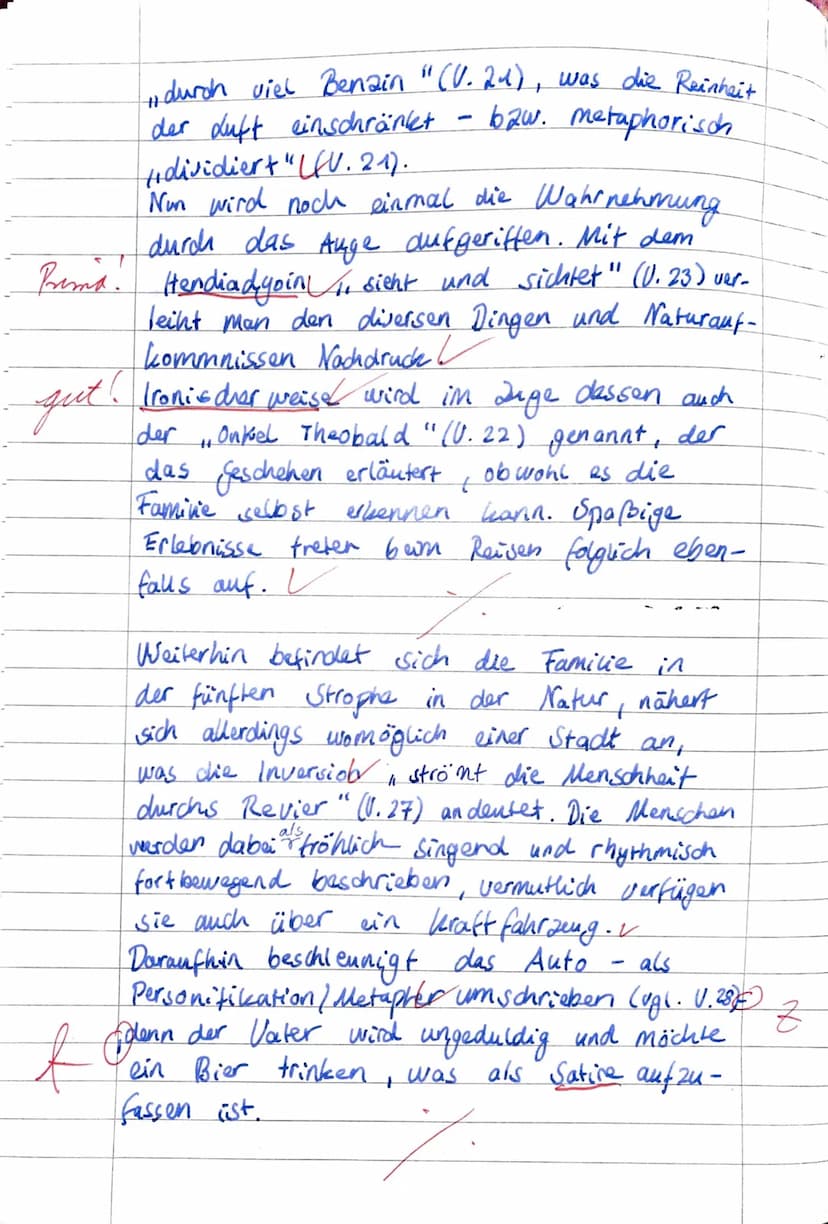 „durch viel Benzin" (V. 21), was die Reinheit
der Luft einschränkt – bzw. metaphorisch
„dividiert" (V. 21).
Nun wird noch einmal die Wahrnehmung
durch das Auge aufgeriffen. Mit dem
Prima! Hendiadyoin „sieht und sichtet" (V. 23) ver-
leiht man den diversen Dingen und Naturauf-
kommnissen Nachdruck
gut! Ironischer weise wird im Zuge dessen auch
der „Onkel Theobald" (V. 22) genannt, der
das Geschehen erläutert, obwohl es die
Familie selbst erkennen kann. Spaßige
Erlebnisse treten beim Reisen folglich eben-
falls auf.
Weiterhin befindet sich die Familie in
der fünften Strophe in der Natur, nähert
sich allerdings womöglich einer Stadt an,
was die Inversion „strömt die Menschheit
durchs Revier" (V. 27) andeutet. Die Menschen
werden dabei als fröhlich singend und rhythmisch
fortbewegend beschrieben, vermutlich verfügen
sie auch über ein Kraftfahrzeug.
Daraufhin beschleunigt das Auto – als
Personifikation/Metapher umschrieben (vgl. V. 28)– Z
f , denn der Vater wird ungeduldig und möchte
ein Bier trinken, was als Satire aufzu-
fassen ist.